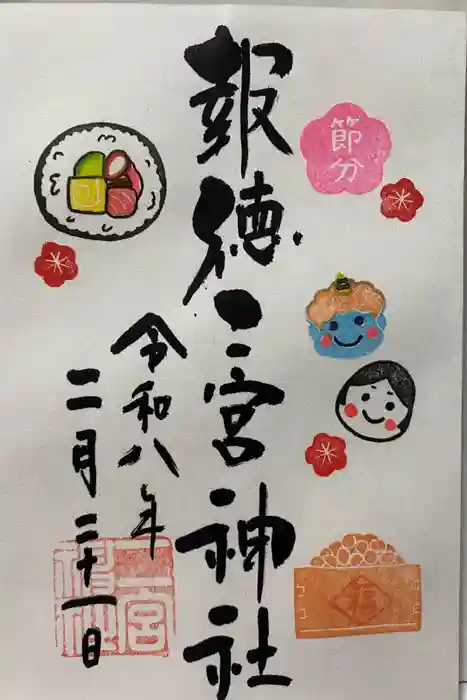 節分
福
報徳二宮神社
令和八年
二月二十一日
二宮
神社